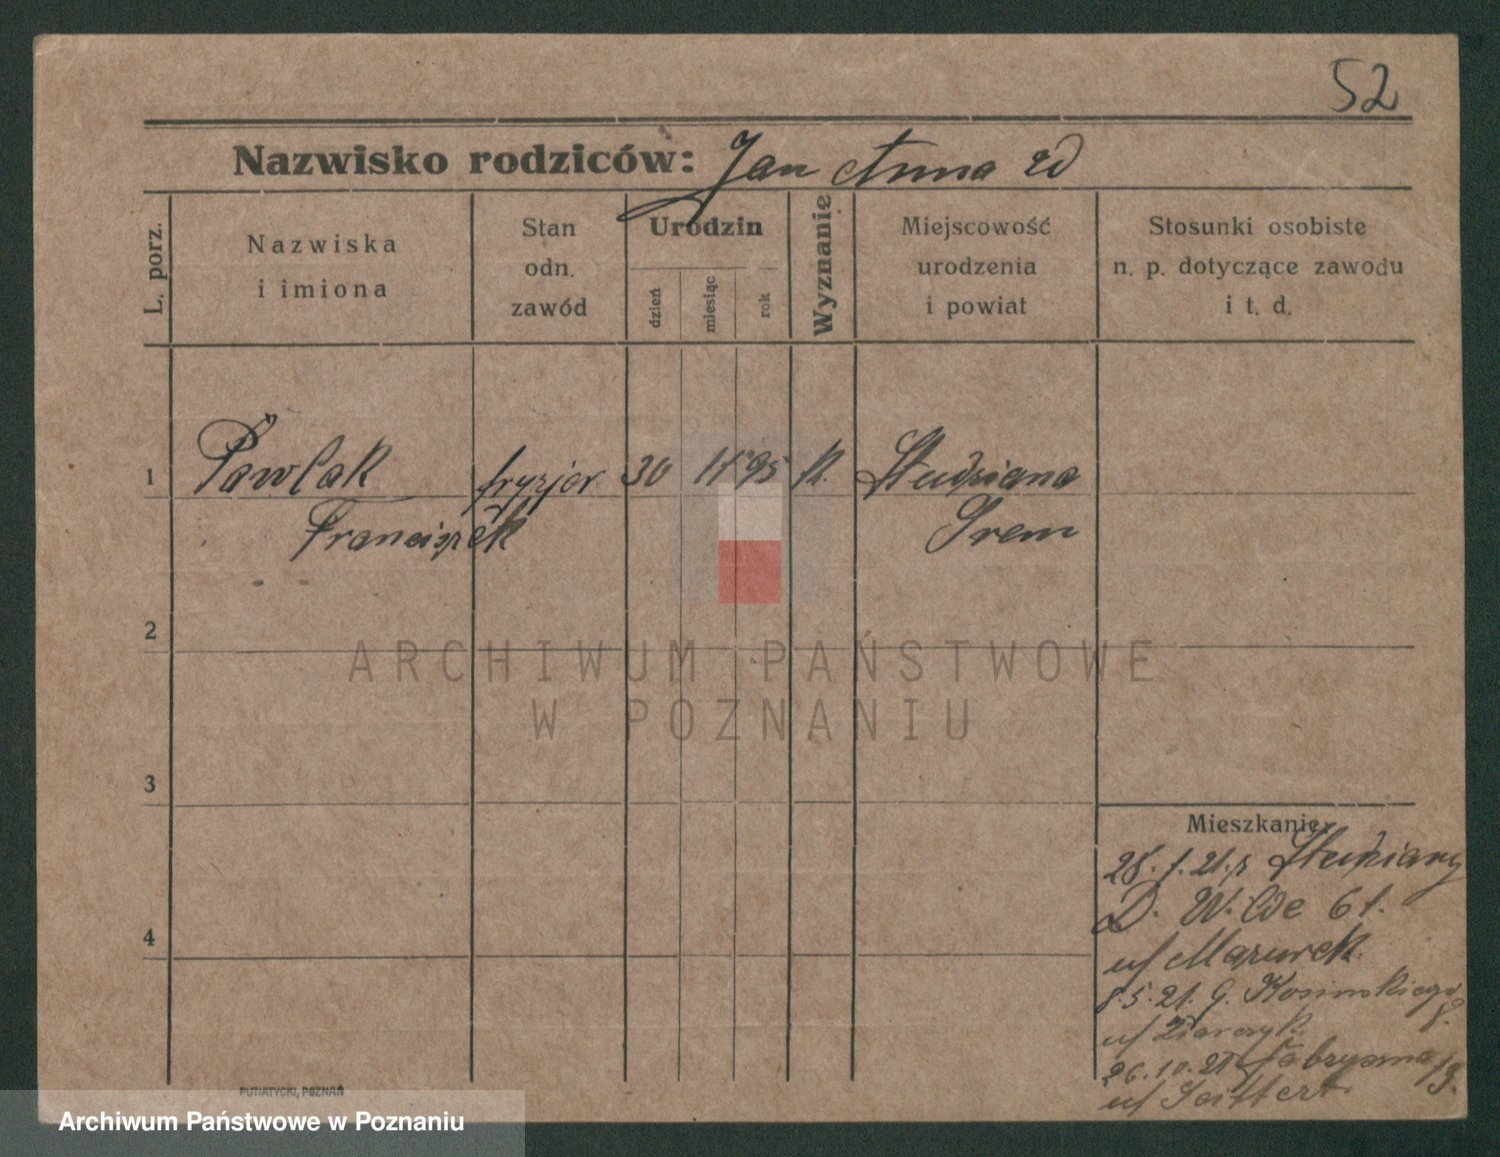 52
Nazwisko rodziców: Jan Anna
L. porz.
Nazwiska
i imiona
Stan
odn.
zawód
Urodzin
dzień
miesiąc
rok
Wyznanie
Miejscowość
urodzenia
i powiat
Stosunki osobiste
n. p. dotyczące zawodu
i t. d.
1 Pawlak fryzjer 30 11 95 k. Studziana
Franciszek Śrem
2
3
4
ARCHIWUM PAŃSTWOWE
W POZNANIU
Mieszkanie:
28. 1. 21. z
D. Wilde 61.
u/ Mazurek
8. 5. 21. G. Kosinskiego 8.
u/
26. 10. 21 Fabryczna 13.
u/ Seiffert
PUTIATYCKI, POZNAŃ
Archiwum Państwowe w Poznaniu